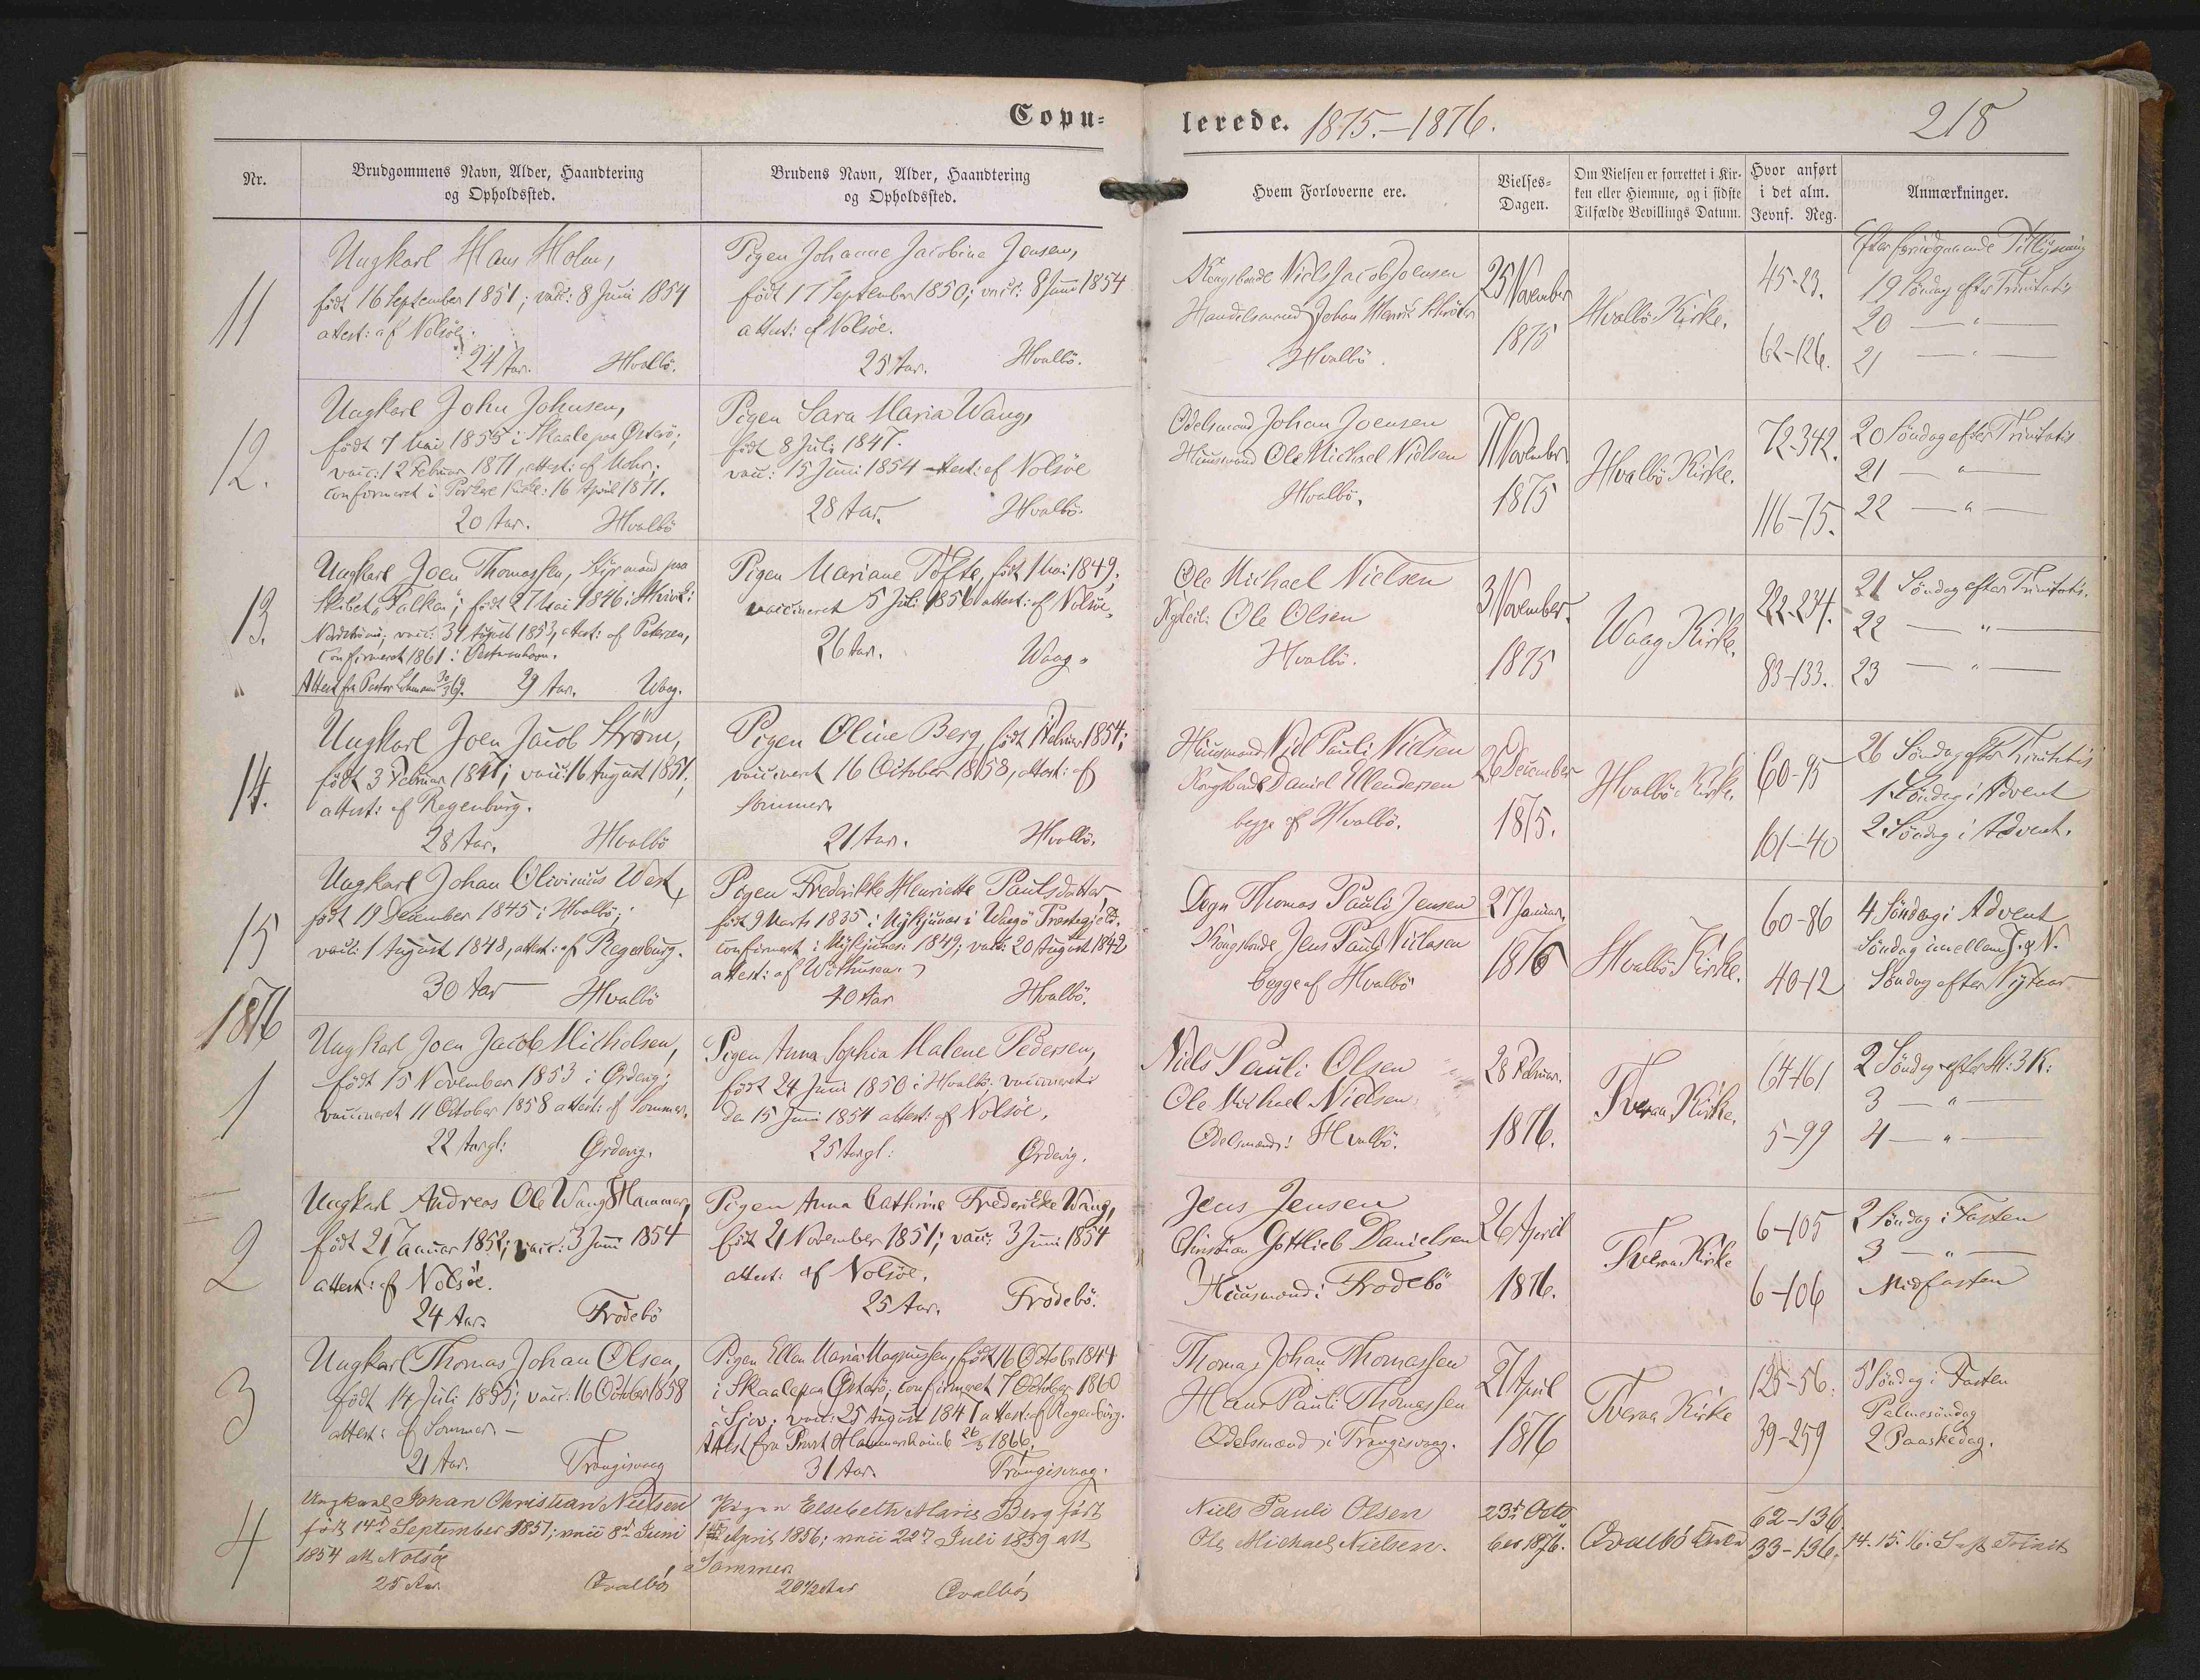 Copu=
lerede. 1875.–1876.
218
Nr.
Brudgommens Navn, Alder, Haandtering
og Opholdssted.
Brudens Navn, Alder, Haandtering
og Opholdssted.
Hvem Forloverne ere.
Vielses=
Dagen.
Om Vielsen er forrettet i Kir-
ken eller Hiemme, og i sidste
Tilfælde Bevillings Datum.
Hvor anført
i det alm.
Jevnf. Reg.
Anmærkninger.
11
Ungkarl Hans Holm,
født 16 September 1851; vacc: 8 Juni 1854
attest: af Nolsöe.
24 Aar. Hvalbö.
Pigen Johanne Jacobine Jensen,
født 17 September 1850; vacc: 8 Juni 1854
attest: af Nolsöe.
25 Aar. Hvalbö.
Kongsbonde Niels Jacob Joensen
Handelsmand Johan Henrik Schröter
Hvalbö.
25 November
1875
Hvalbö Kirke.
45-23.
62-126.
Efter foregaaende Tillysning
19 Söndag efter Trinitatis
20 — " —
21 — " —
12.
Ungkarl John Johnsen,
født 7 Mai 1855 i Skaale paa Østerö;
vacc: 12 Februar 1871, attest: af Mohr;
confirmeret i Porkere Kirke: 16 April 1871.
20 Aar. Hvalbö
Pigen Sara Maria Wang,
født 8 Juli 1847.
vacc: 15 Juni 1854 attest: af Nolsöe
28 Aar. Hvalbö.
Odelsmand Johan Joensen
Huusmand Ole Michael Nielsen
Hvalbö.
11 November
1875
Hvalbö Kirke.
72-342.
116-75.
20 Söndag efter Trinitatis
21 — " —
22 — " —
13.
Ungkarl Joen Thomassen, Styrmand paa
Skibet "Falken"; født 27 Mai 1846 i
vacc: 31 August 1853, attest: af Petersen,
Confirmeret 1861 i Vestmanhavn.
Attest fra Pastor 29 Aar. Waag.
Pigen Mariane Tofte, født 1 Mai 1849;
vaccineret 5 Juli 1856 attest: af Nolsöe.
26 Aar. Waag.
Ole Michael Nielsen
Ole Olsen
Hvalbö.
3 November.
1875
Waag Kirke.
222-234.
83-133.
21 Söndag efter Trinitatis.
22 — " —
23 — " —
14.
Ungkarl Joen Jacob Strøm,
født 3 Februar 1847; vacc: 16 August 1851,
attest: af Regenburg.
28 Aar. Hvalbö
Pigen Oline Berg, født Februar 1854;
vaccineret 16 October 1858, attest: af
Sommer.
21 Aar. Hvalbö.
Huusmand Niel Pauli Nielsen
Kongsbonde Daniel Ellendersen
begge af Hvalbö.
26 December
1875.
Hvalbö Kirke.
60-95
101-40
26 Söndag efter Trinitatis
1 Söndag i Advent
2 Söndag i Advent.
15
Ungkarl Johan Olivinius West,
født 19 December 1845 i Hvalbö;
vacc: 1 August 1848, attest: af Regenburg.
30 Aar Hvalbö
Pigen Frederikke Henriette Paulsdatter,
født 9 Marts 1835 i i Waagö
Confirmeret i 1849; vacc: 20 August 1842
attest: af
40 Aar Hvalbö.
Degn Thomas Pauli Jensen
Kongsbonde Jens Pauli Niclasen
begge af Hvalbö
27 Januar,
1876
Hvalbö Kirke.
60-86
40-12
4. Söndag i Advent
Söndag imellem J. og N.
Söndag efter Nytaar
1876
1
Ungkarl Joen Jacob Micholsen,
født 15 November 1853 i Ørdevig;
vaccineret 11 October 1858 attest: af Sommer.
22 Aargl: Ørdevig.
Pigen Anna Sophia Malene Pedersen,
født 24 Juni 1850 i Hvalbö: vaccineret
den 15 Juni 1854 attest: af Nolsöe.
25 Aargl: Ørdevig.
Niels Pauli Olsen
Ole Michael Nielsen
Odelsmænd i Hvalbö.
28 Februar.
1876.
Tveraa Kirke.
64-161
5-99
2 Söndag efter H: 3 K:
3 — " —
4 — " —
2
Ungkarl Andreas Ole Wang Hammer,
født 21 Januar 1852; vacc: 3 Juni 1854
attest: af Nolsöe.
24 Aar. Frodebö
Pigen Anna Cathrine Frederikke Wang,
født 21 November 1851; vacc: 3 Juni 1854
attest: af Nolsöe.
25 Aar. Frodebö.
Jens Jensen
Christian Gottlieb Danielsen
Huusmænd i Frodebö
26 April
1876.
Tveraa Kirke
6-105
6-106
2 Söndag i Fasten
3 — " —
Midfasten
3
Ungkarl Thomas Johan Olsen,
født 14 Juli 1855; vacc: 16 October 1858
attest: af Sommer. —
21 Aar. Trangisvaag
Pigen Ellen Maria Magnussen, født 16 October 1844
i Skaale paa Østerö; confirmeret 7 October 1860
i Sjov; vacc: 25 August 1847 attest: af Regenburg.
Attest fra Provst Hammershaimb 26/3 1866.
31 Aar. Trangisvaag.
Thomas Johan Thomassen
Hans Pauli Thomassen
Odelsmænd i Trangisvaag.
27 April
1876
Tveraa Kirke
125-56.
39-259
5 Söndag i Fasten
Palmesöndag
2 Paaskedag.
4
Ungkarl Johan Christian Nielsen
født 14de September 1851; vacc 8de Juni
1854 att Nolsöe
25 Aar Qvalbö
Pigen Elsebeth Maria Berg født
April 1856; vacc 22de Juli 1859 att
Sommer
20½ Aar Qvalbö
Niels Pauli Olsen
Ole Michael Nielsen.
23de Octo
ber 1876.
Qvalbö Kirke
62-136
33-136.
14. 15. 16. S. eft Trinit